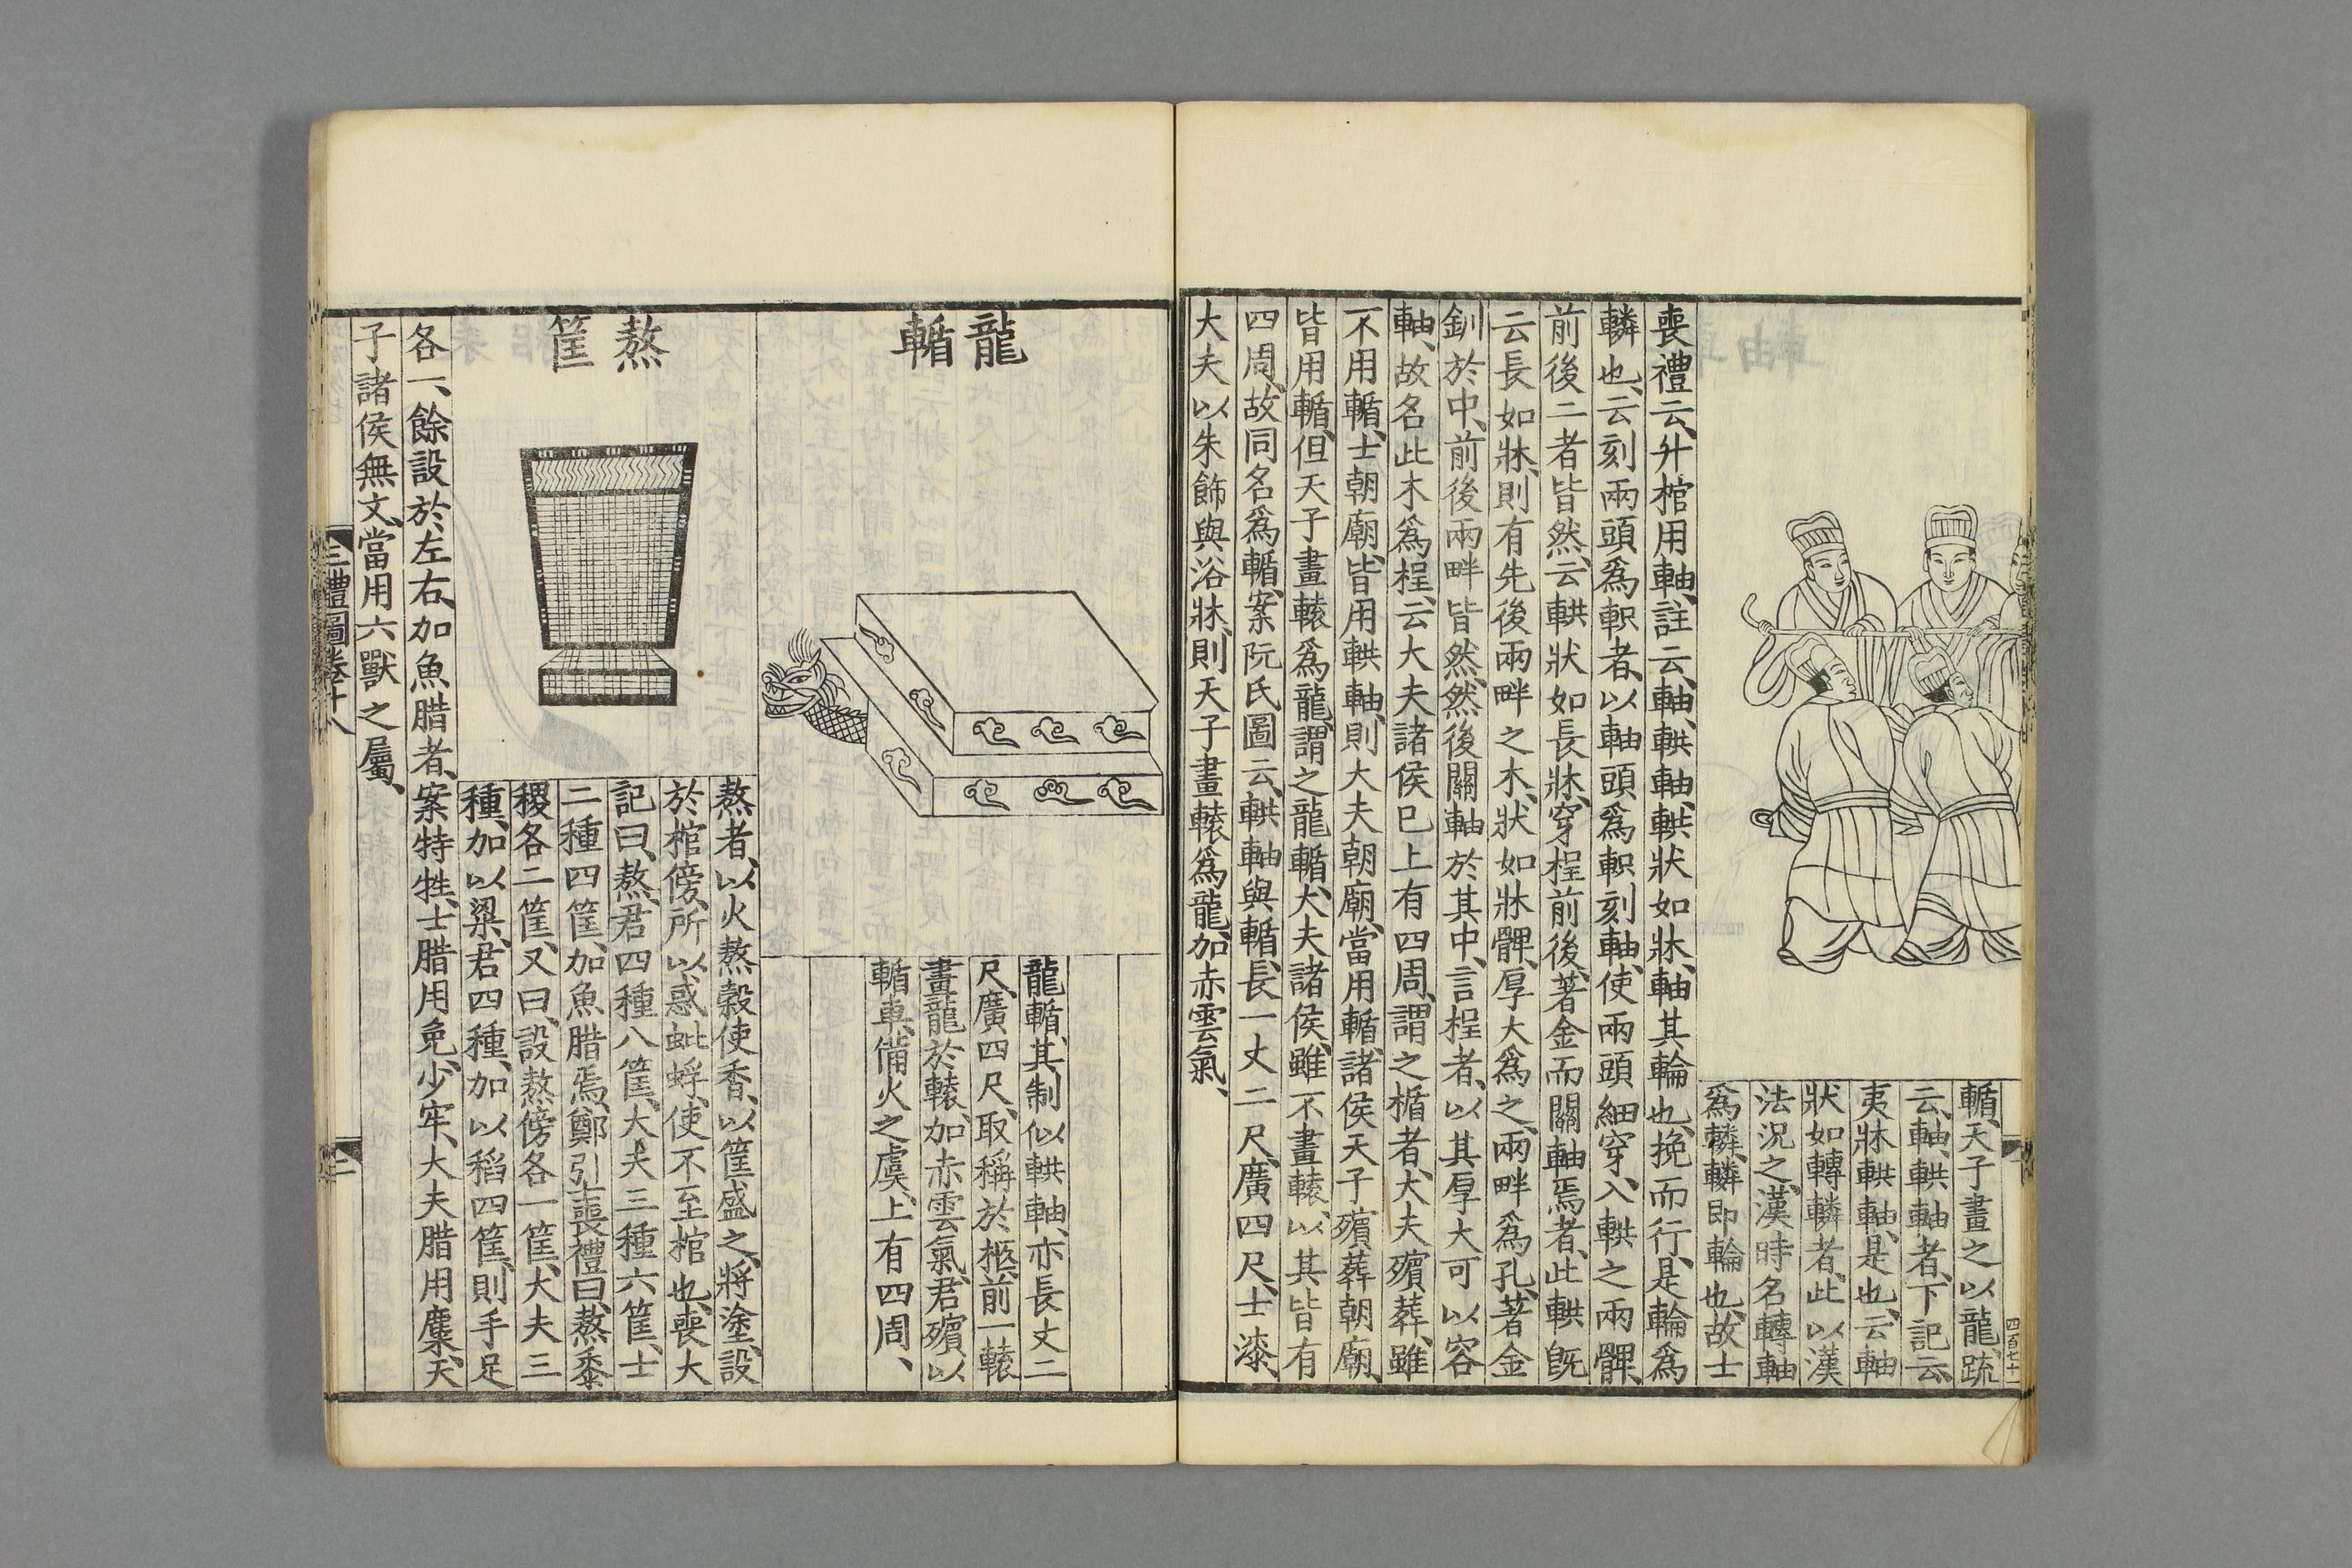 輴、天子畫之以龍、疏
云、軸、輁軸者、下記云、
夷牀輁軸、是也、云軸
狀如轉轔者、此以漢
法況之、漢時名轉軸
爲轔、轔即輪也、故士
喪禮云、升棺用軸、註云、軸、輁軸、輁狀如牀、軸其輪也、挽而行、是輪爲
轔也、云刻兩頭爲軹者、以軸頭爲軹刻軸、使兩頭細穿入輁之兩髀、
前後二者皆然、云輁狀如長牀、穿桯前後、著金而關軸焉者、此輁既
云長如牀、則有先後兩畔之木、狀如牀髀、厚大爲之、兩畔爲孔、著金
釧於中、前後兩畔皆然、然後關軸於其中、言桯者、以其厚大可以容
軸、故名此木爲桯、云大夫諸侯已上有四周、謂之楯者、大夫殯葬、雖
不用輴、士朝廟、皆用輁軸、則大夫朝廟、當用輴、諸侯天子殯葬朝廟、
皆用輴、但天子畫轅爲龍、謂之龍輴、大夫諸侯、雖不畫轅、以其皆有
四周、故同名爲輴、案阮氏圖云、輁軸與輴、長一丈二尺、廣四尺、士漆、
大夫以朱飾與浴牀、則天子畫轅爲龍、加赤雲氣、
四百七十一
龍輴
龍輴、其制似輁軸、亦長丈二
尺、廣四尺、取稱於柩、前一轅
畫龍於轅、加赤雲氣、君殯以
輴車、備火之虞、上有四周、
熬筐
熬者、以火熬穀使香、以筐盛之、將塗、設
於棺傍、所以惑蚍蜉、使不至棺也、喪大
記曰、熬、君四種八筐、大夫三種六筐、士
二種四筐、加魚腊焉、鄭引士喪禮曰、熬黍
稷各二筐、又曰、設熬傍各一筐、大夫三
種、加以粱、君四種、加以稻四筐、則手足
各一、餘設於左右、加魚腊者、案特牲、士腊用兔、少牢、大夫腊用麋、天
子諸侯無文、當用六獸之屬、
三禮圖卷十八
二